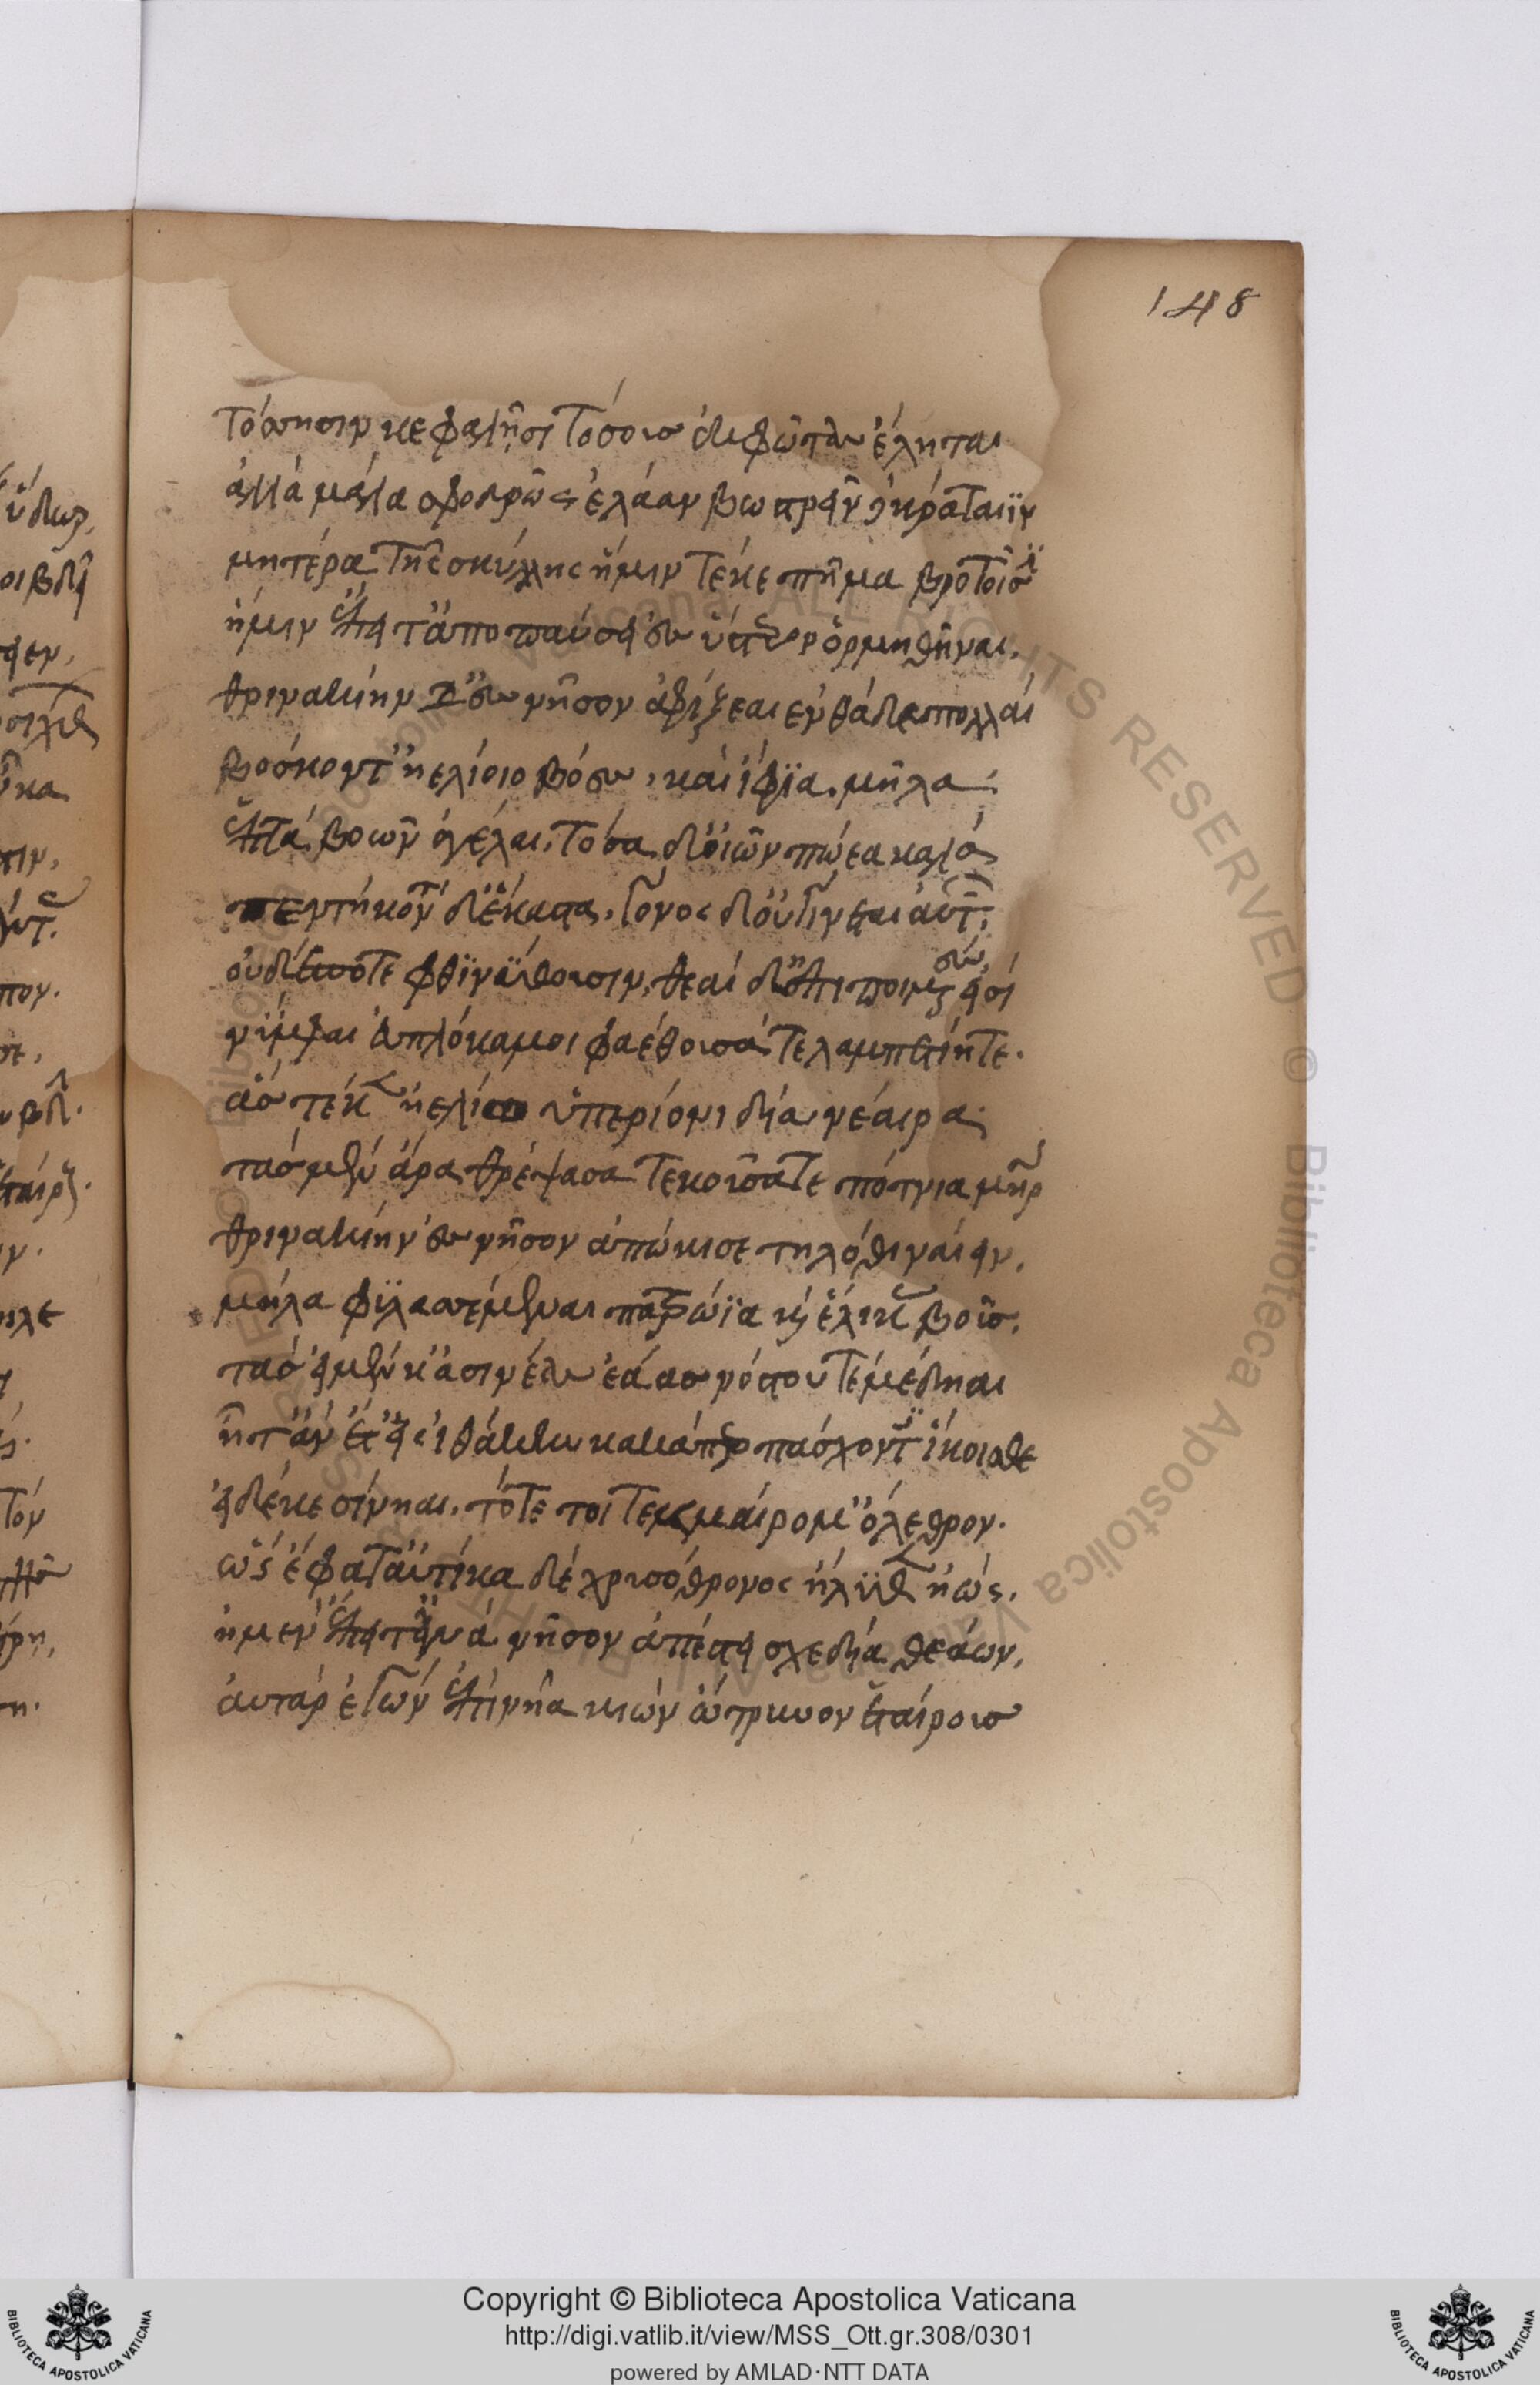 148
τόσσησιν κεφαλῆσι τόσους ἐκ φῶτας ἕληται
ἀλλὰ μάλα σφοδρῶς ἐλάαν βωστρεῖν δὲ κράταιϊν
μητέρα τῆς σκύλλης ἥμιν τέκε πῆμα βροτοῖσι
ἥμιν ἔπειτ' ἀποπαύσει ἐς ὕστερον ὁρμηθῆναι.
θρινακίην δ' ἐς νῆσον ἀφίξεαι ἐνθάδε πολλαί
βόσκοντ' ἠελίοιο βόες, καὶ ἴφϊα μῆλα.
ἑπτὰ βοῶν ἀγέλαι, τόσα δ' ὀϊῶν πώεα καλά
πεντήκοντα δ' ἕκαστα, γόνος δ' οὐ γίνεται αὐτῶν,
οὐδέποτε φθινύθουσιν, θεαὶ δ' ἐπιποιμένες εἰσί
νύμφαι ἐϋπλόκαμοι φαέθουσά τε λαμπετίη τε.
ἃς τέκεν ἠελίω ὑπερίονι δῖα νέαιρα.
τὰς μὲν ἄρα θρέψασα τεκοῦσά τε πότνια μήτηρ
θρινακίην ἐς νῆσον ἀπώκισε τηλόθι ναίειν,
μῆλα φυλασσέμεναι πατρώϊα καὶ ἕλικας βοῦς.
τὰς εἰ μέν κ' ἀσινέας ἐάας νόστου τε μέδηαι
ἦ τ' ἂν ἔτ' εἰς ἰθάκην κακά περ πάσχοντες ἵκοισθε
εἰ δέ κε σίνηαι, τότε τοι τεκμαίρομ' ὄλεθρον.
ὣς ἔφατ' αὐτίκα δὲ χρυσόθρονος ἤλυθεν ἠώς.
ἡ μὲν ἔπειτ' ἀνὰ νῆσον ἀπέστειχε δῖα θεάων,
αὐτὰρ ἐγὼν ἐπὶ νῆα κιὼν ὤτρυνον ἑταίρους
Copyright © Biblioteca Apostolica Vaticana
http://digi.vatlib.it/view/MSS_Ott.gr.308/0301
powered by AMLAD·NTT DATA